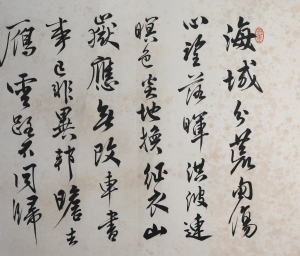 海域分荒甸傷
心望落暉洪波連
暝色炎地換征衣山
嶽應無改車書
事已非異邦瞻去
雁雲路不同歸